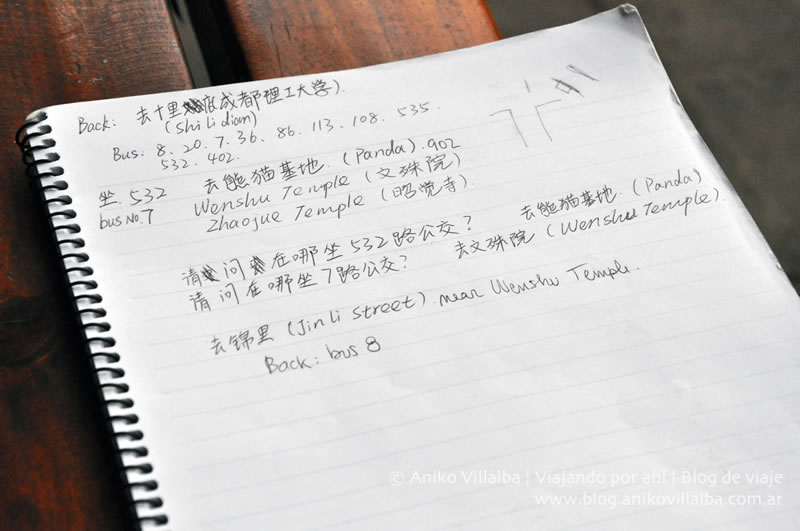 Back: 去十里店成都理工大学).
(Shi Li dian)
Bus: 8. 20. 7. 36. 86. 113. 108. 535.
532. 402.
坐. 532 去熊猫基地. (Panda). 902
bus No. 7 Wenshu Temple (文殊院)
Zhaojue Temple (昭觉寺)
请问在哪坐 532 路公交? 去熊猫基地. (Panda)
请问在哪坐 7 路公交? 去文殊院 (Wenshu Temple).
去锦里 (Jin Li Street) near Wenshu Temple.
Back: bus 8
© Aniko Villalba | Viajando por ahí | Blog de viaje
www.blog.anikovillalba.com.ar